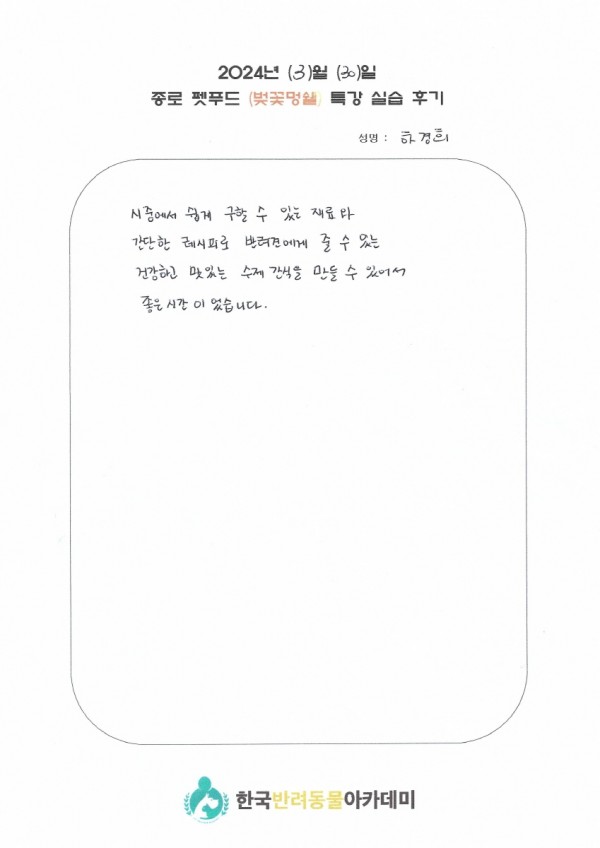 2024년 (3)월 (30)일
종로 펫푸드 (벚꽃멍쉘) 특강 실습 후기
성명 : 하경희
시중에서 쉽게 구할 수 있는 재료와
간단한 레시피로 반려견에게 줄 수 있는
건강하고 맛있는 수제 간식을 만들 수 있어서
좋은 시간이었습니다.
한국반려동물아카데미